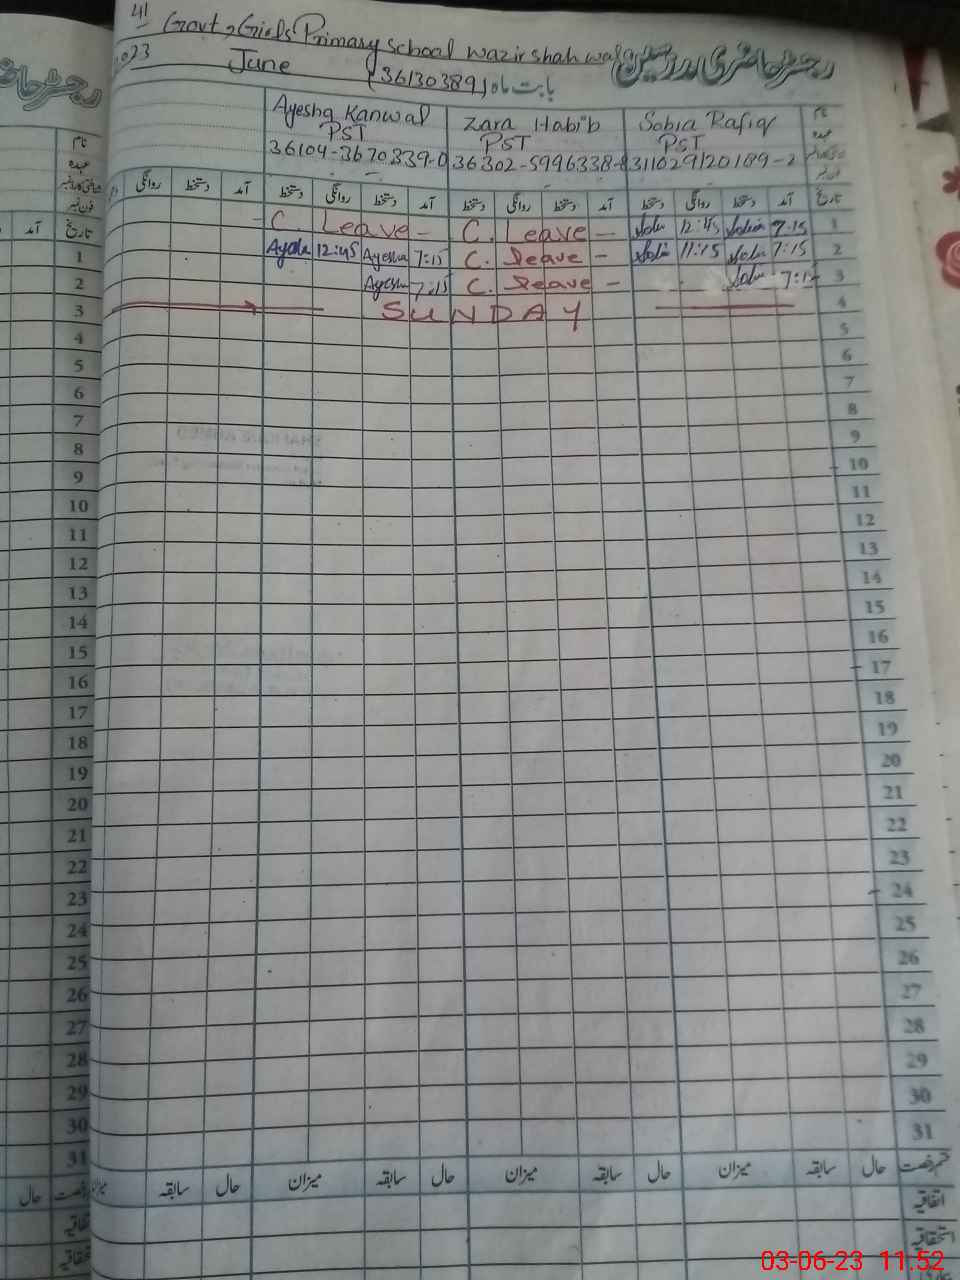 41 Govt, Girls Primary School Wazir shah wala رجسٹر حاضری مدرسین
2023 June (36130389) بابت ماہ
Ayesha Kanwal Zara Habib Sobia Rafiq نام
PST PST PST عہدہ
36104-3670339-0 36302-5996338-8 31102 شناختی کارڈ نمبر
فون نمبر
روانگی دستخط آمد دستخط روانگی دستخط آمد دستخط روانگی دستخط آمد دستخط روانگی دستخط آمد تاریخ
C. Leave - C. Leave - Sobia 12:45 Sobia 7:15 1
Ayesha 12:45 Ayesha 7:15 C. Leave - Sobia 11:15 Sobia 7:15 2
Ayesha 7:15 C. Leave - Sobia 7:15 3
SUNDAY 4
5
6
7
8
9
10
11
12
13
14
15
16
17
18
19
20
21
22
23
24
25
26
27
28
29
30
31
سابقہ حال میزان سابقہ حال میزان سابقہ حال میزان سابقہ حال قسم رخصت
اتفاقیہ
استحقاقیہ
رجسٹر حاضری
نام
عہدہ
شناختی کارڈ نمبر
فون نمبر
آمد تاریخ
1
2
3
4
5
6
7
8
9
10
11
12
13
14
15
16
17
18
19
20
21
22
23
24
25
26
27
28
29
30
31
حال رخصت
03-06-23 11.52